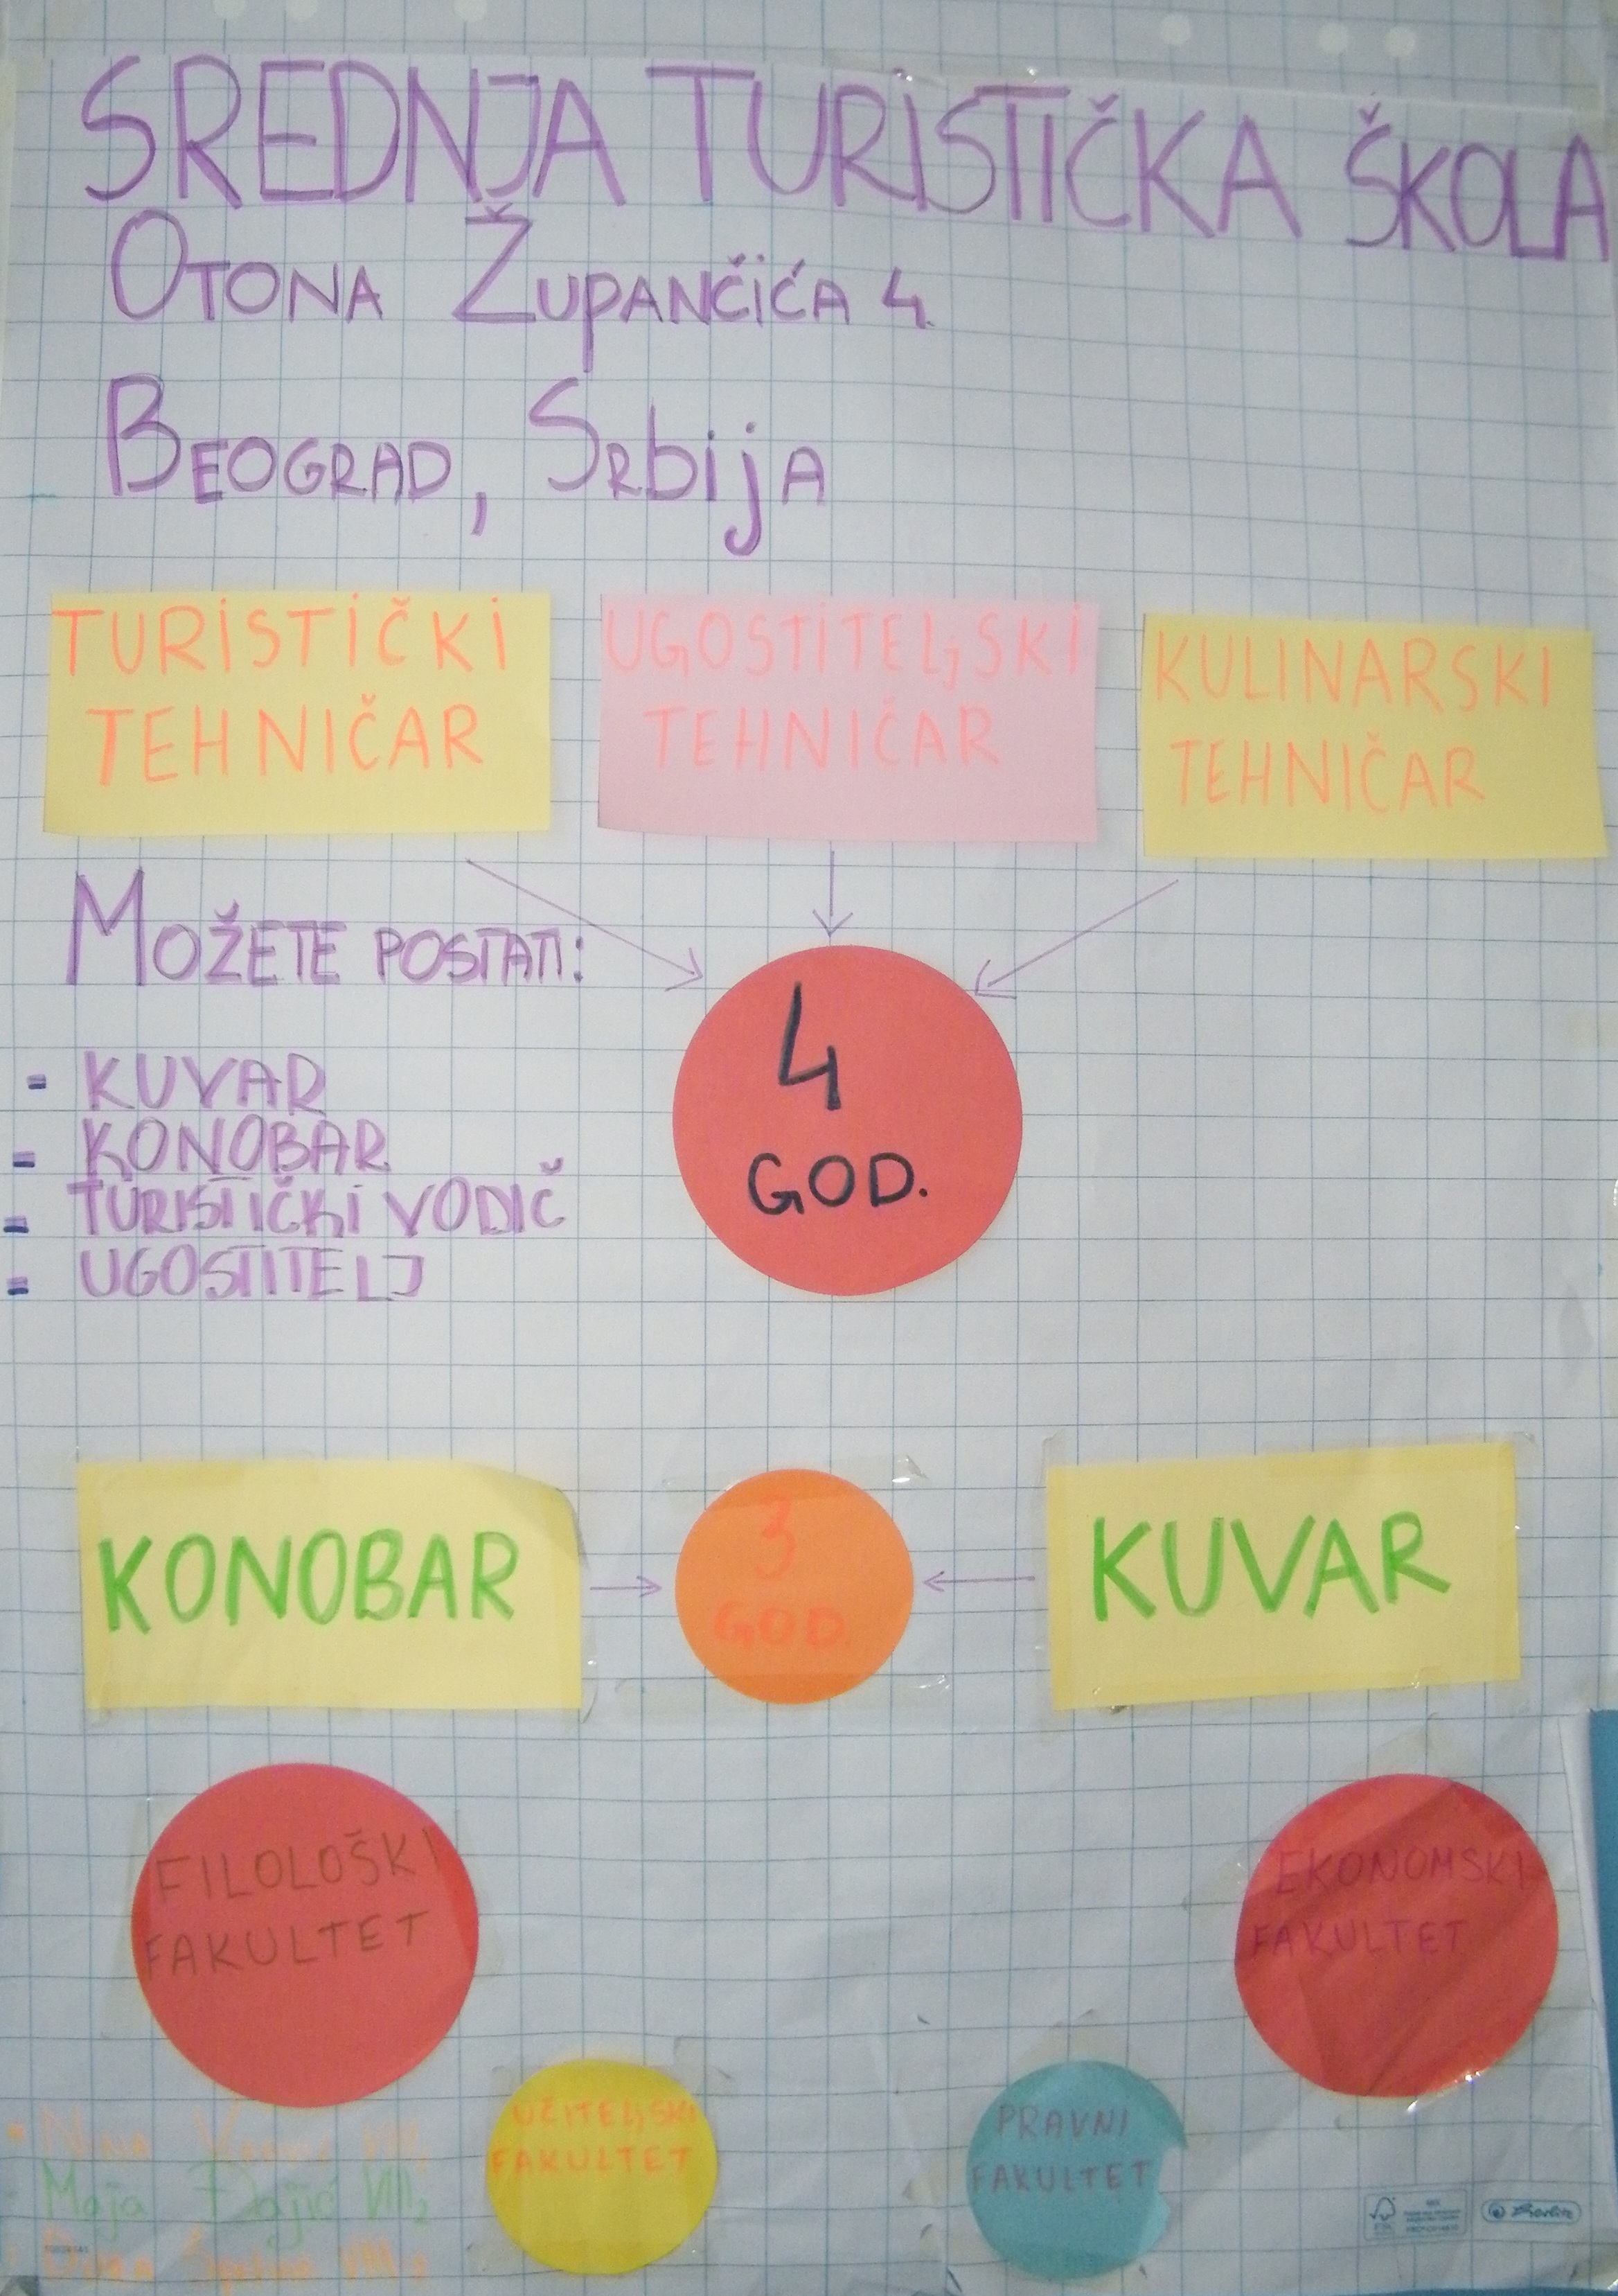 SREDNJA TURISTIČKA ŠKOLA
OTONA ŽUPANČIĆA 4
BEOGRAD, SRbijA
TURISTIČKI
TEHNIČAR
UGOSTITELjSKI
TEHNIČAR
KULINARSKI
TEHNIČAR
MOŽETE POSTATI:
4
GOD.
- KUVAR
- KONOBAR
- TURISTIČKI VODIČ
- UGOSTITELJ
KONOBAR
3
GOD.
KUVAR
FILOLOŠKI
FAKULTET
EKONOMSKI
FAKULTET
UČITELjSKI
FAKULTET
PRAVNI
FAKULTET
NINA VIII
Maja Đajić VIII2
VIII2
FSC